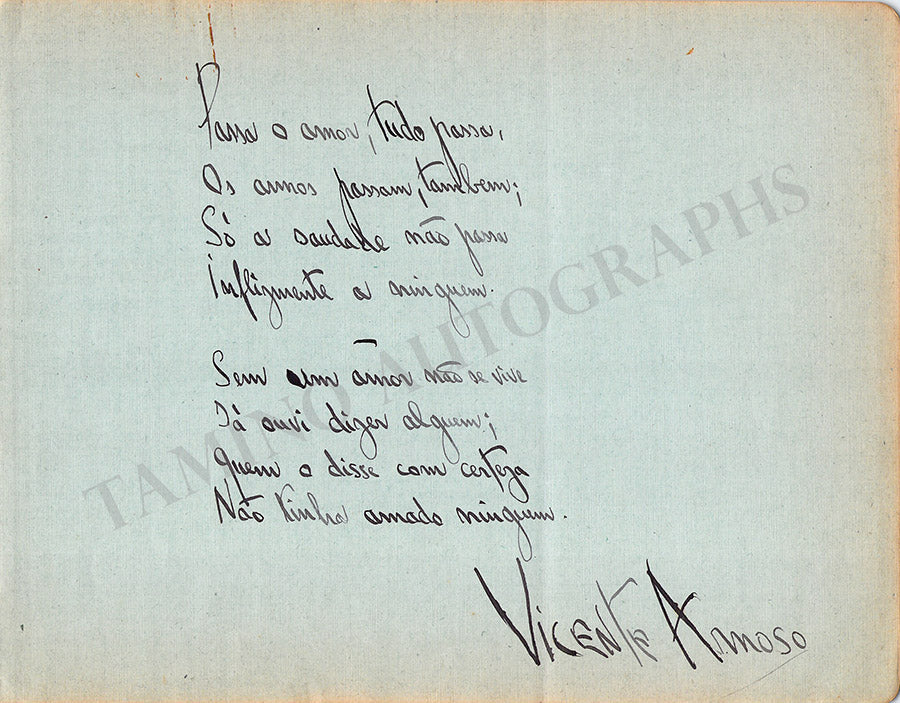 Passa o amor, tudo passa,
Os annos passam, tambem;
Só a saudade não passa
Infelizmente a ninguem.
Sem um amor não se vive
Já ouvi dizer alguem;
Quem o disse com certeza
Não tinha amado ninguem.
Vicente Arnoso
TAMINO AUTOGRAPHS